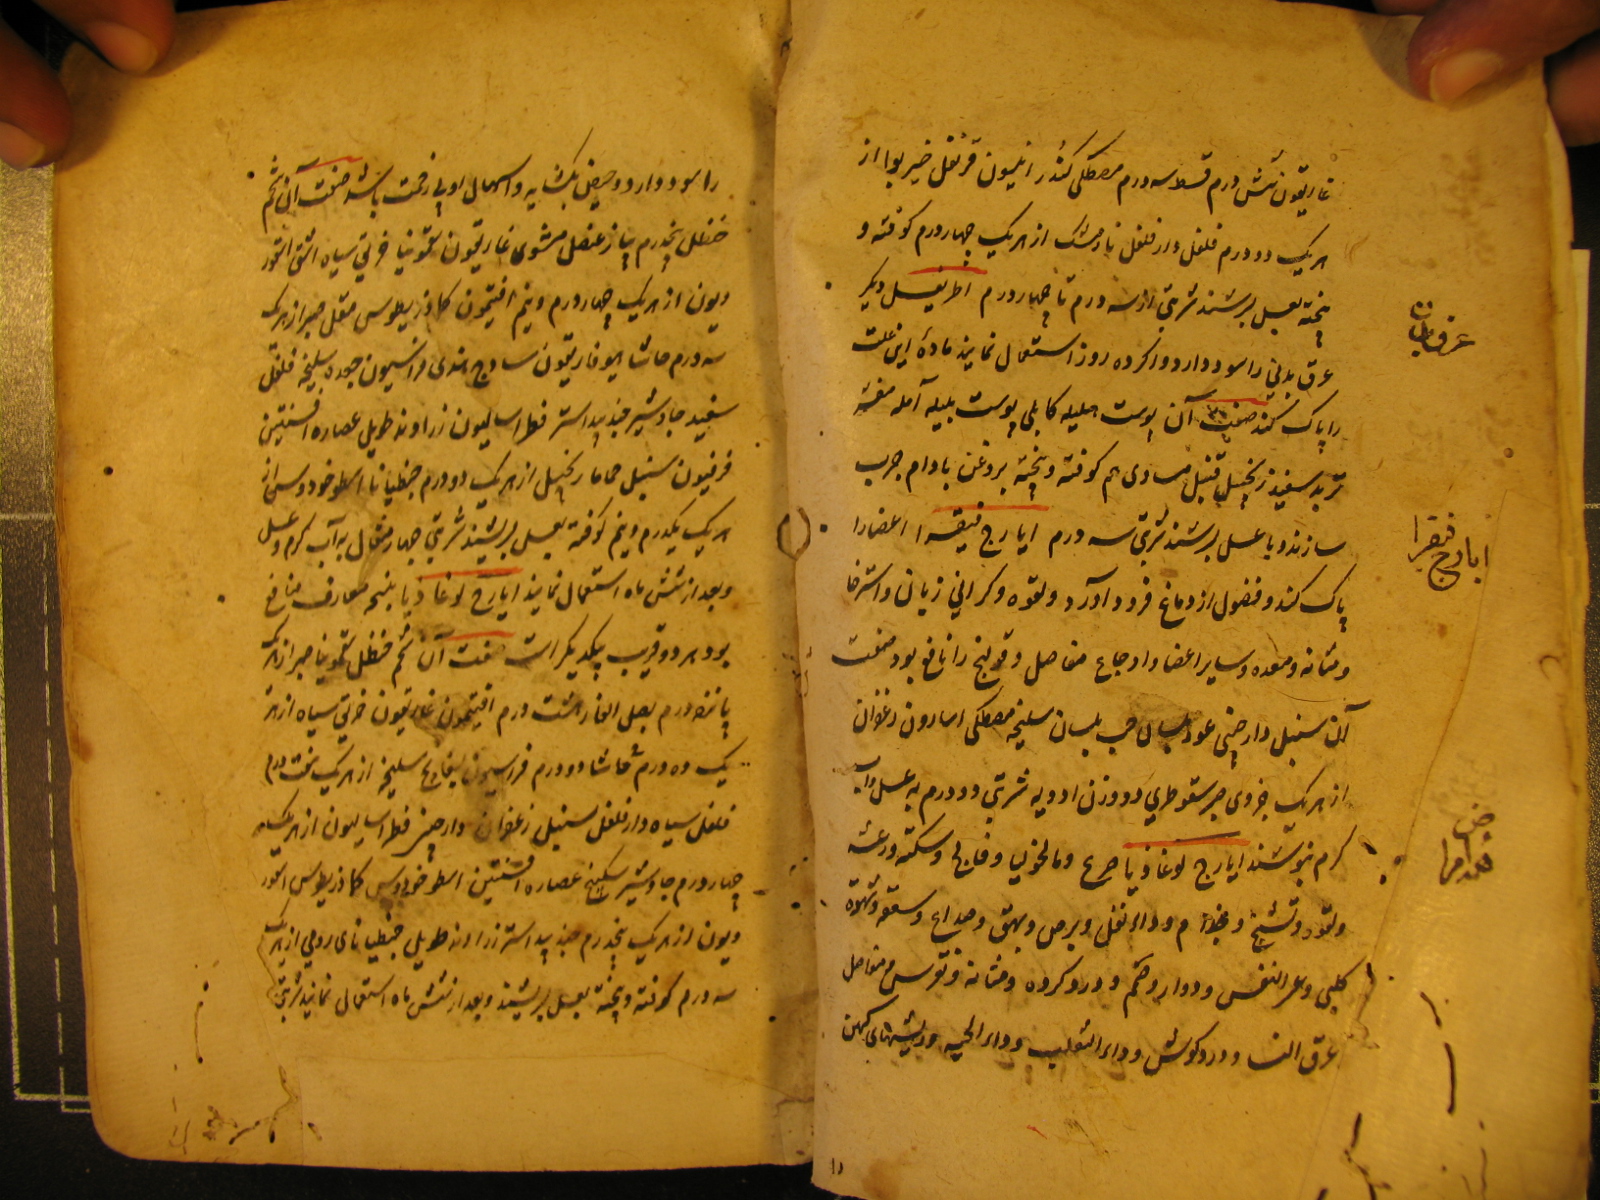 غاریقون شش درم قسط سه درم مصطکی کندر انیسون قرنفل خیربوا از
هر یک دو درم فلفل دار فلفل نارمشک از هر یک چهار درم کوفته و
پخته بعسل بسرشند شربتی از سه درم تا چهار درم اطریفل دیگر
عرق بدنی را سود دارد و اکرده روز استعمال نمایند مادهٔ این علت
را پاک کند صفت آن پوست هلیله کابلی پوست بلیله آمله مقشر
تربد سفید زنجبیل قنبیل مساوی هم کوفته و پخته بروغن بادام چرب
سازند و با عسل بسرشند شربتی سه درم ایارج فیقرا اعضا را
پاک کند و فضول از دماغ فرود آورد و لقوه و کرانی زبان و استرخا
و مثانه و معده و سایر اعضا و اوجاع مفاصل و قولنج را نافع بود صفت
آن سنبل دارچینی عود بلسان حب بلسان سلیخه مصطکی اسارون زعفران
از هر یک جزوی صبر سقوطری دو وزن ادویه شربتی دو درم به عسل و آب
کرم بنوشند ایارج لوغاذیا صرع و مالخولیا و فالج و سکته و رعشه
و لقوه و تشنج و جذام و داء الفیل و برص و بهق و صداع و سعفه و شهوة
کلبی و عسر النفس و دوار و صمم و درد کرده و مثانه و نقرس و مفاصل
عرق النسا و درد کوش و داء الثعلب و داء الحیه و ریشهای کهن
عرق بدنی
ایارج فیقرا
را سود دارد و حیض بکشاید و اسهال او بی زحمت باشد صفت آن شحم
حنظل پنجدرم پیاز عنصل مشوی غاریقون سقمونیا خربق سیاه اشق اسقور
دیون از هر یک چهار درم و نیم افتیمون کماذریطوس مقل صبر از هر یک
سه درم حاشا هیوفاریقون سادج هندی فراسیون جعده سلیخه فلفل
سفید جاوشیر جندبیدستر فطراسالیون زراوند طویل عصاره افسنتین
فرفیون سنبل حماما زنجبیل از هر یک دو درم جنطیانا اسطوخودوس از
هر یک یکدرم و نیم کوفته بعسل بسرشند شربتی چهار مثقال به آب کرم و عسل
و بعد از شش ماه استعمال نمایند ایارج لوغاذیا بنسخه متعارف منافع
بود هر دو قریب یکدیکر است صفت آن شحم حنظل سقمونیا صبر از هر یک
پانزده درم بصل الفار هشت درم افتیمون غاریقون خربق سیاه از هر
یک ده درم حاشا دو درم فراسیون بسفایج سلیخه از هر یک هفت درم
فلفل سیاه دار فلفل سنبل زعفران دارچینی فطراسالیون از هر یک
چهار درم جاوشیر سکبینج عصاره افسنتین اسطوخودوس کماذریطوس اسقور
دیون از هر یک پنجدرم جندبیدستر زراوند طویل جنطیانای رومی از هر یک
سه درم کوفته و پخته بعسل بسرشند و بعد از شش ماه استعمال نمایند شربتی